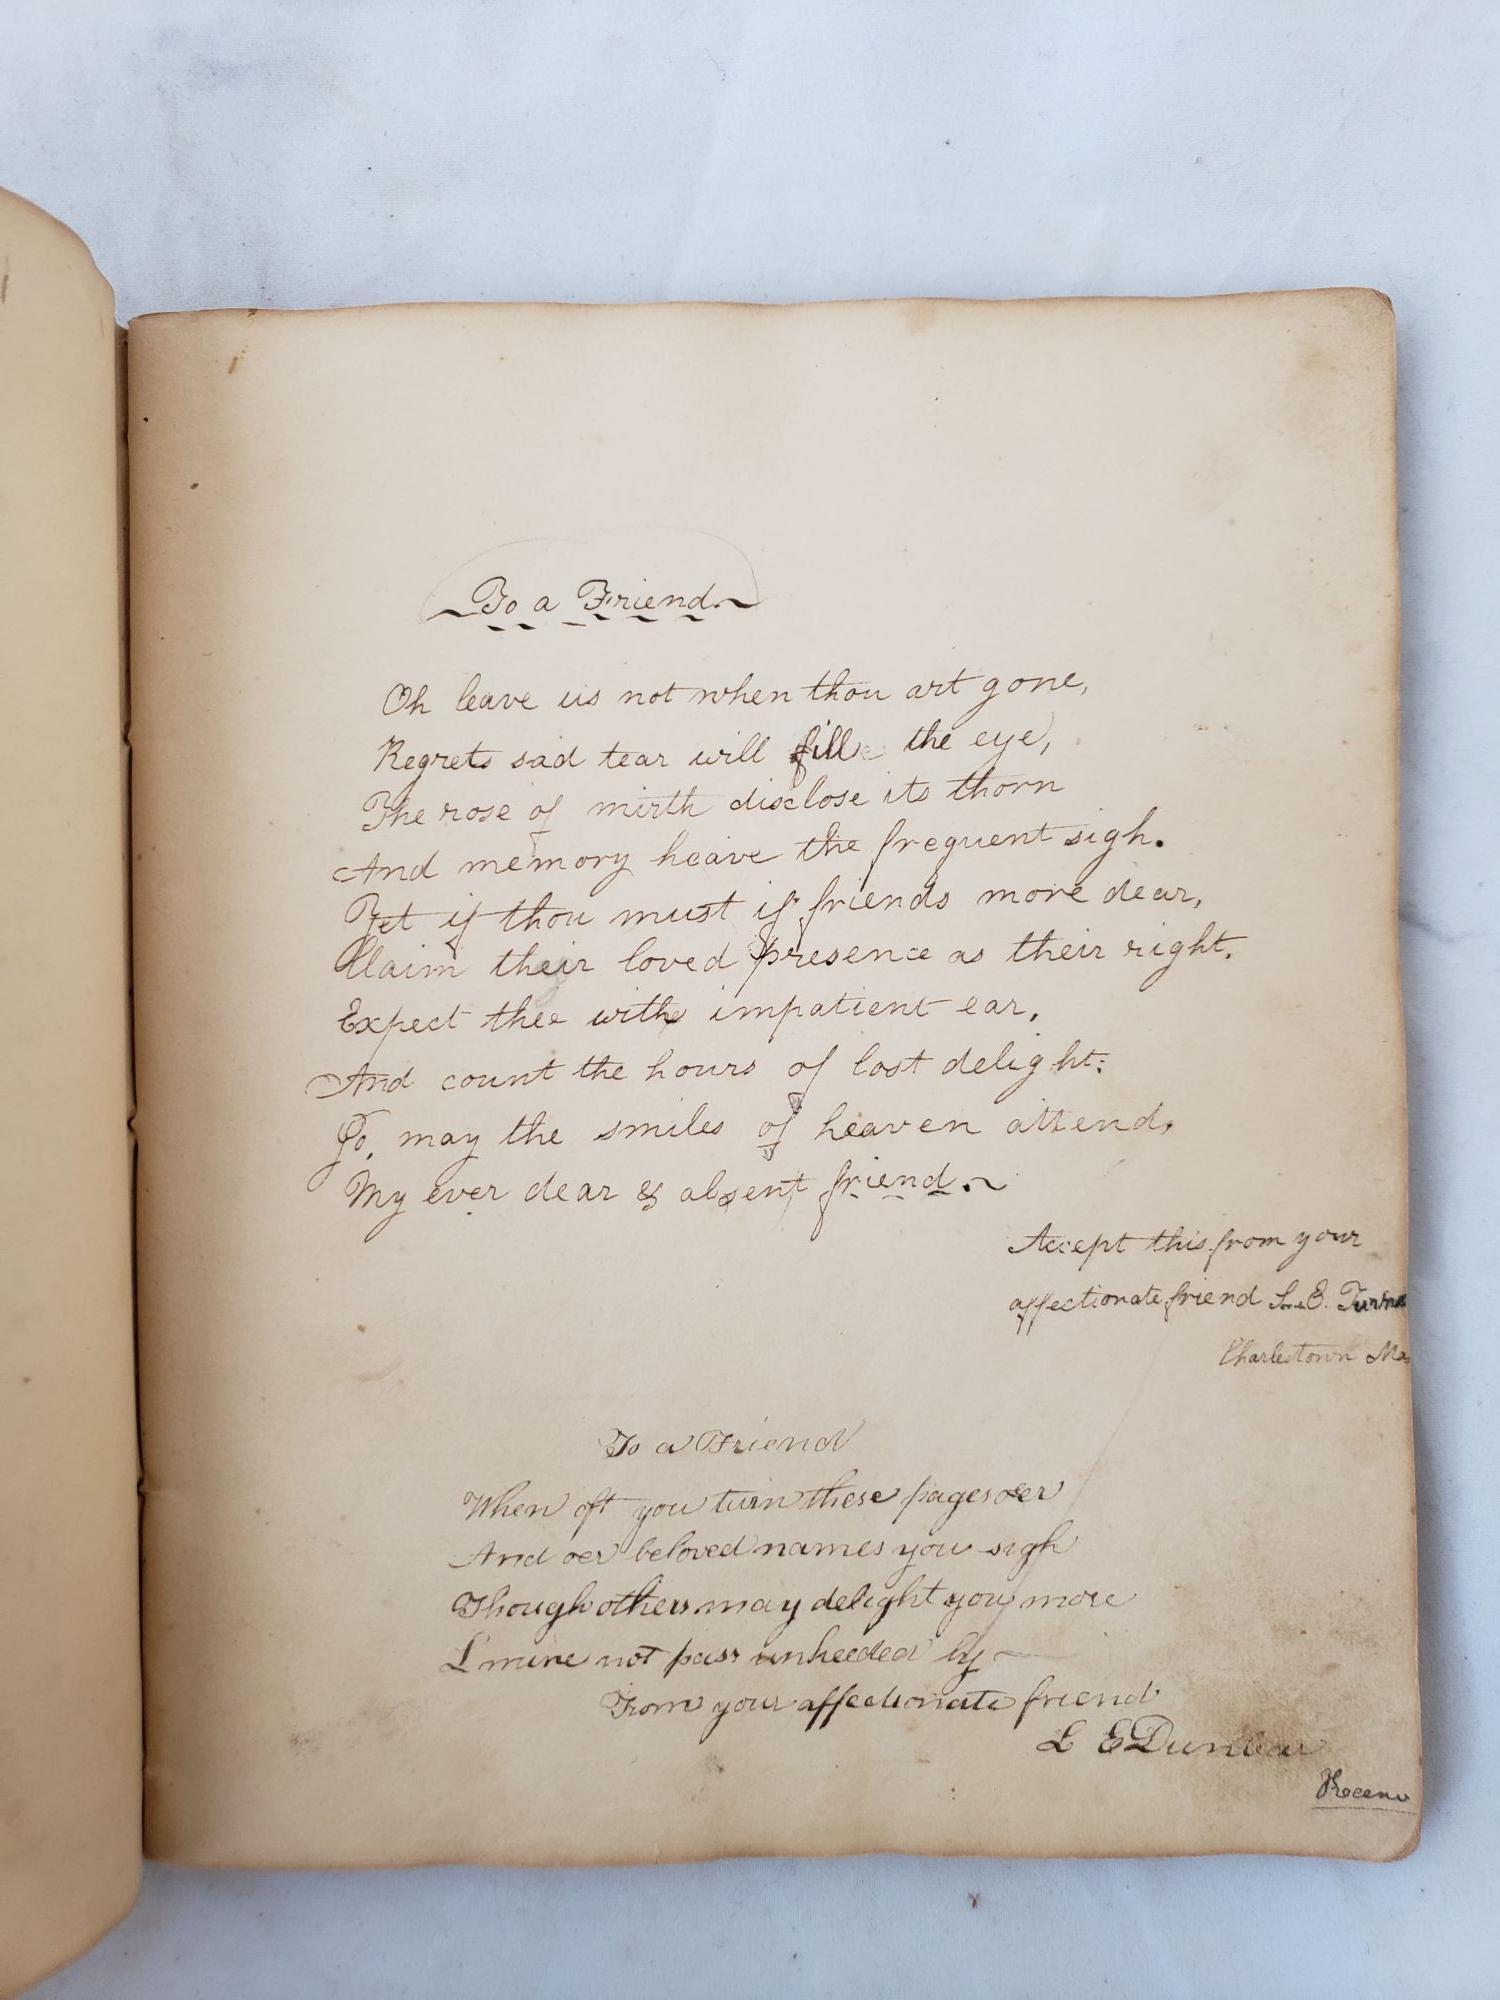 To a Friend.
Oh leave us not when thou art gone,
Regrets sad tear will fill the eye,
The rose of mirth disclose its thorn
And memory heave the frequent sigh.
Yet if thou must if friends more dear,
Claim their loved presence as their right.
Expect thee with impatient ear,
And count the hours of lost delight:
Go, may the smiles of heaven attend,
My ever dear & absent friend.
Accept this from your
affectionate friend E.
Charlestown
To a Friend
When oft you turn these pages oer
And oer beloved names you sigh
Though others may delight you more
L mine not pass unheeded by
From your affectionate friend
L E Dunbar